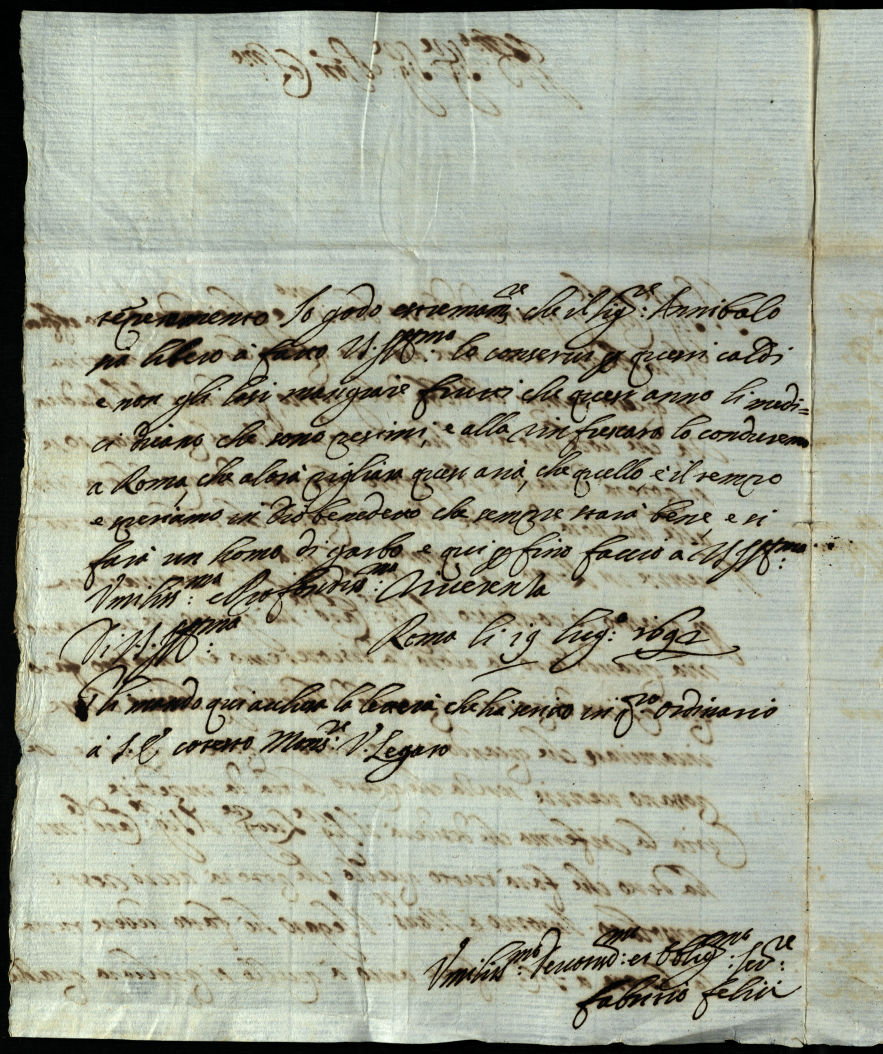 Io godo estremam.te che il Sig.re Annibale
sia libero a fatto V.S. Ill.ma lo conservi p questi caldi
e non gli lasi mangiare frutti che quest anno li medi=
ci dicano che sono pessimi, e alla rinfrescata lo conduremo
a Roma, che alora pigliara quest aria, che quello è il tempo
e speriamo in Dio benedetto che sempre starà bene, e si
farà un homo di garbo e qui p fine faccio a V.S. Ill.ma
Vmiliss.ma e Profondiss.ma Riverenza
Di V.S. Ill.ma Roma li 19 lug.o 1692
Gli mando qui acclusa la lettera che ha scrito in q.sto ordinario
à S.E. cotesto Mons.re V. Legato
Vmiliss.mo Devotiss.mo et Obblig.mo Ser.re
Fabritio Felici